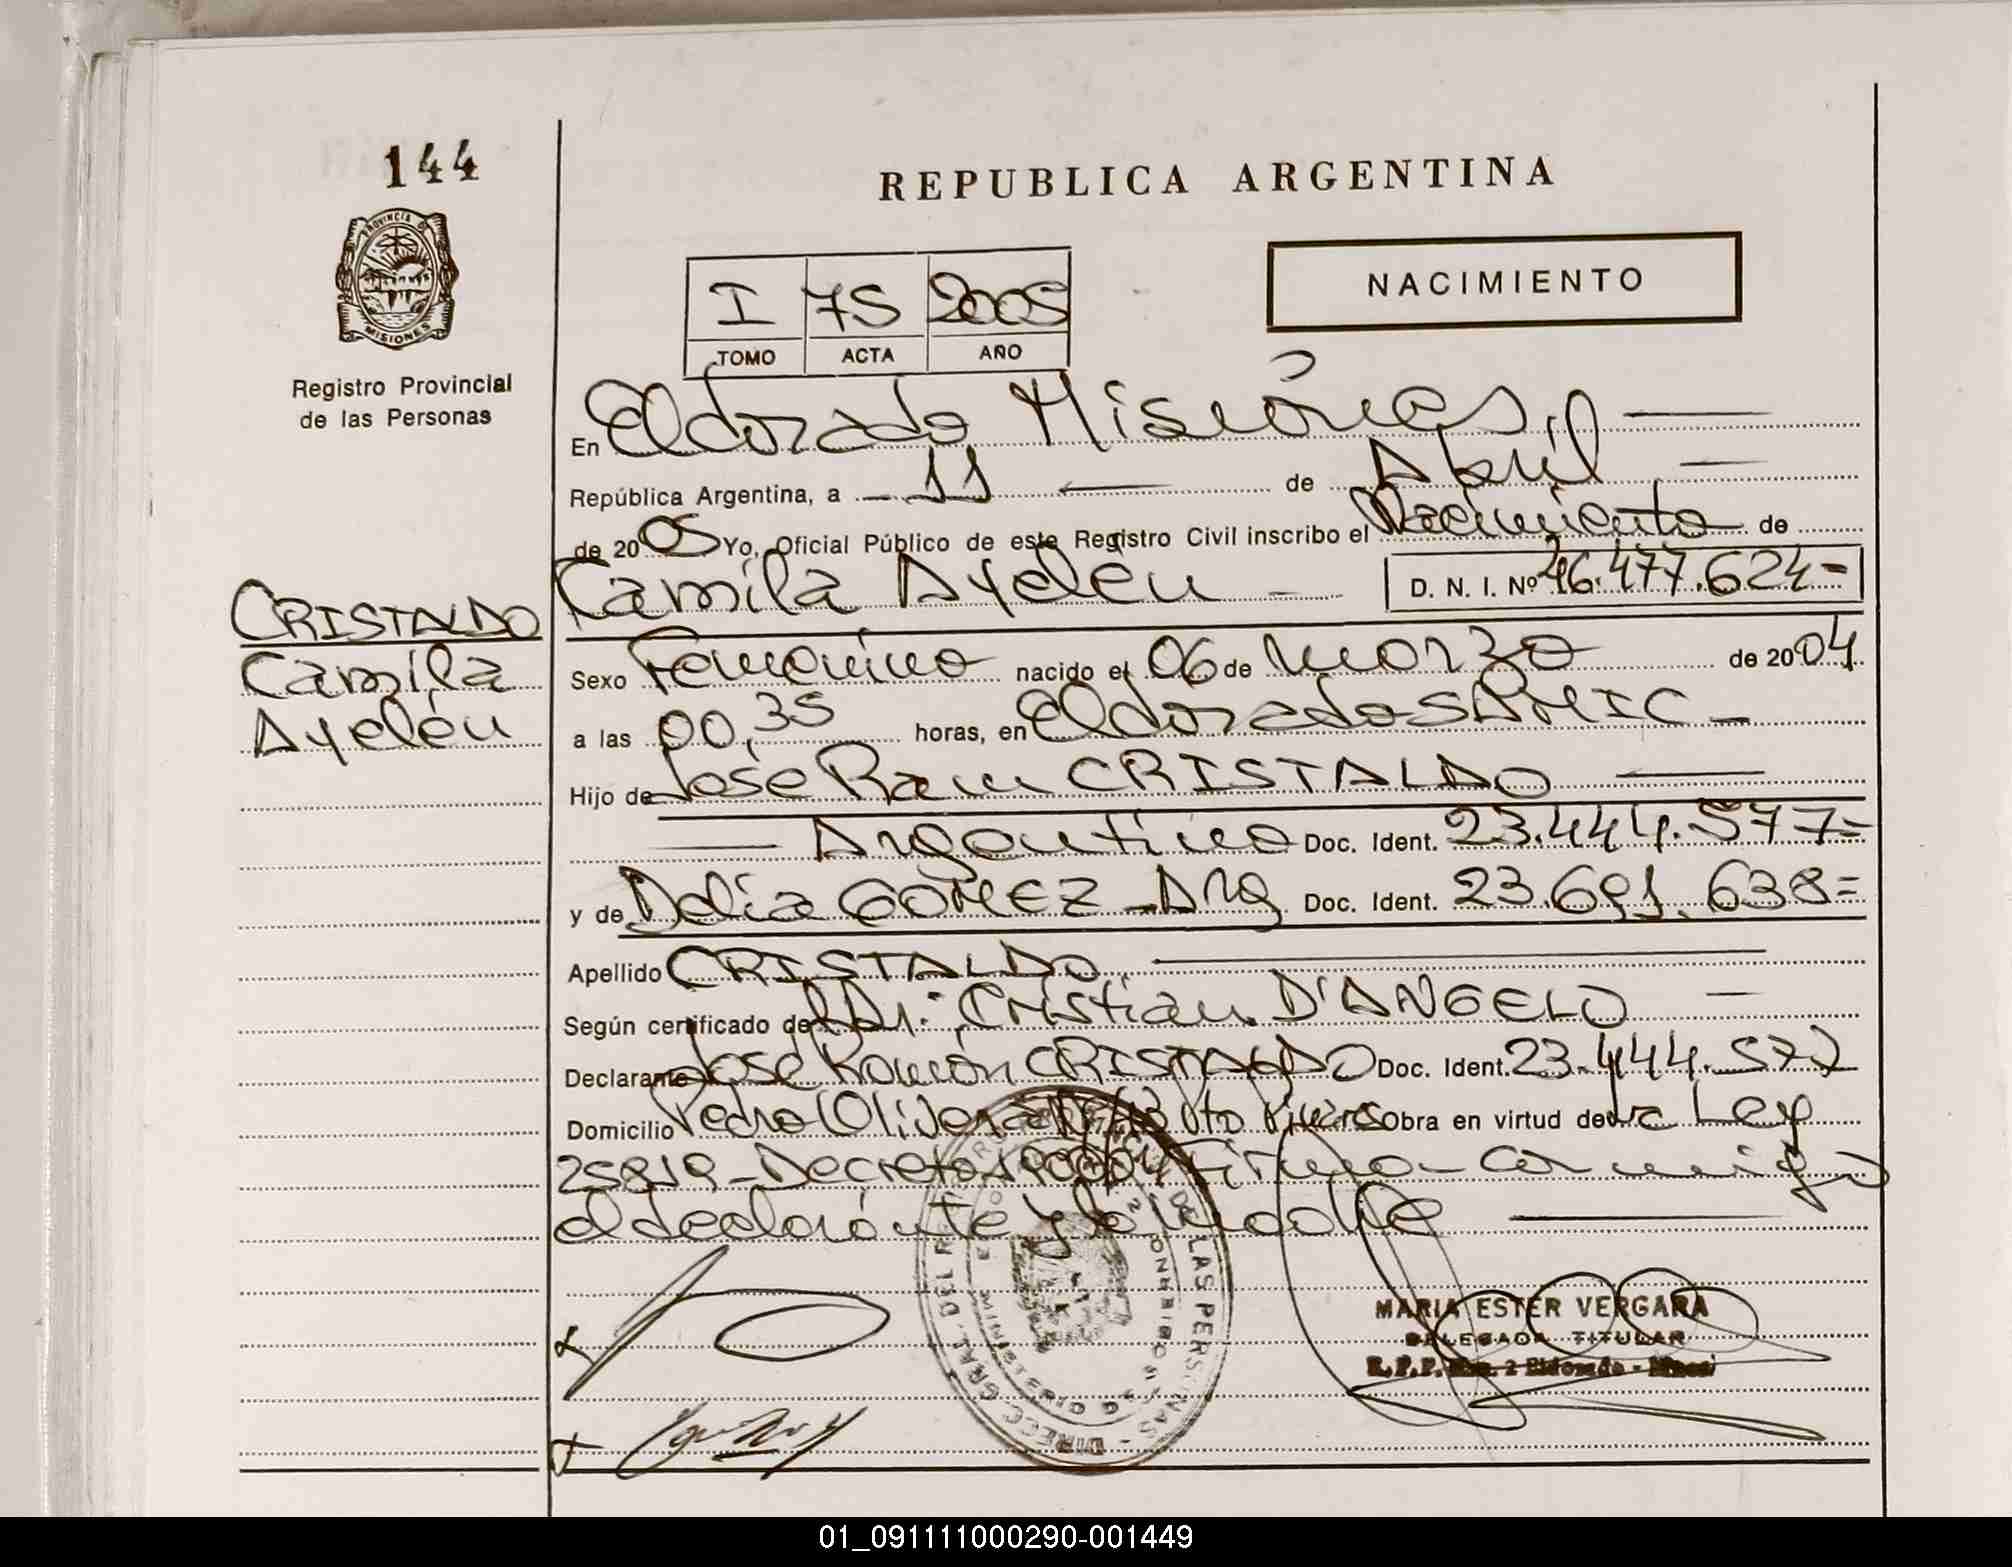 144
REPUBLICA ARGENTINA
PROVINCIA D
MISIONES
Registro Provincial
de las Personas
I 75 2005
TOMO ACTA AÑO
NACIMIENTO
En Eldorado Misiones,
República Argentina, a 11 de Abril
de 2005 Yo, Oficial Público de este Registro Civil inscribo el Nacimiento de
Camila Ayelén D. N. I. Nº 46.477.624=
CRISTALDO
Camila
Ayelén
Sexo Femenino nacido el 06 de marzo de 2004
a las 00,35 horas, en Eldorado SAMIC
Hijo de José Ram CRISTALDO
Argentino Doc. Ident. 23.444.577=
y de Delia GOMEZ - Arg Doc. Ident. 23.691.638=
Apellido CRISTALDO
Según certificado de Dr. Cristian D'ANGELO
Declarante José Ramón CRISTALDO Doc. Ident. 23.444.577
Domicilio Pedro Olivera Obra en virtud de la Ley
25819 - Decreto Firma conmigo
el declarante y la madre
MARIA ESTER VERGARA
DELEGADA TITULAR
R.P.P. 2 Eldorado - Mnes
DIREC. GRAL. DEL DE LAS PERSONAS
01_091111000290-001449